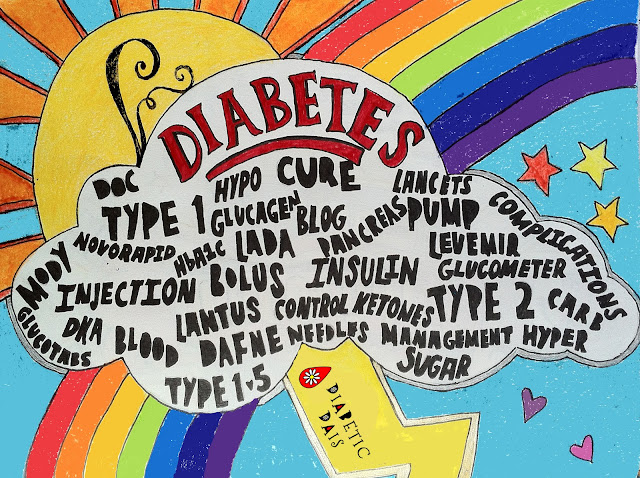 DIABETES
DOC HYPO CURE LANCETS COMPLICATIONS
TYPE 1 GLUCAGEN BLOG PANCREAS PUMP
MODY NOVORAPID HbA1c LADA LEVEMIR
INJECTION BOLUS INSULIN GLUCOMETER
GLUCOTABS DKA BLOOD LANTUS CONTROL KETONES TYPE 2 CARB
DAFNE NEEDLES MANAGEMENT HYPER
TYPE 1.5 SUGAR
DIABETIC
DAIS